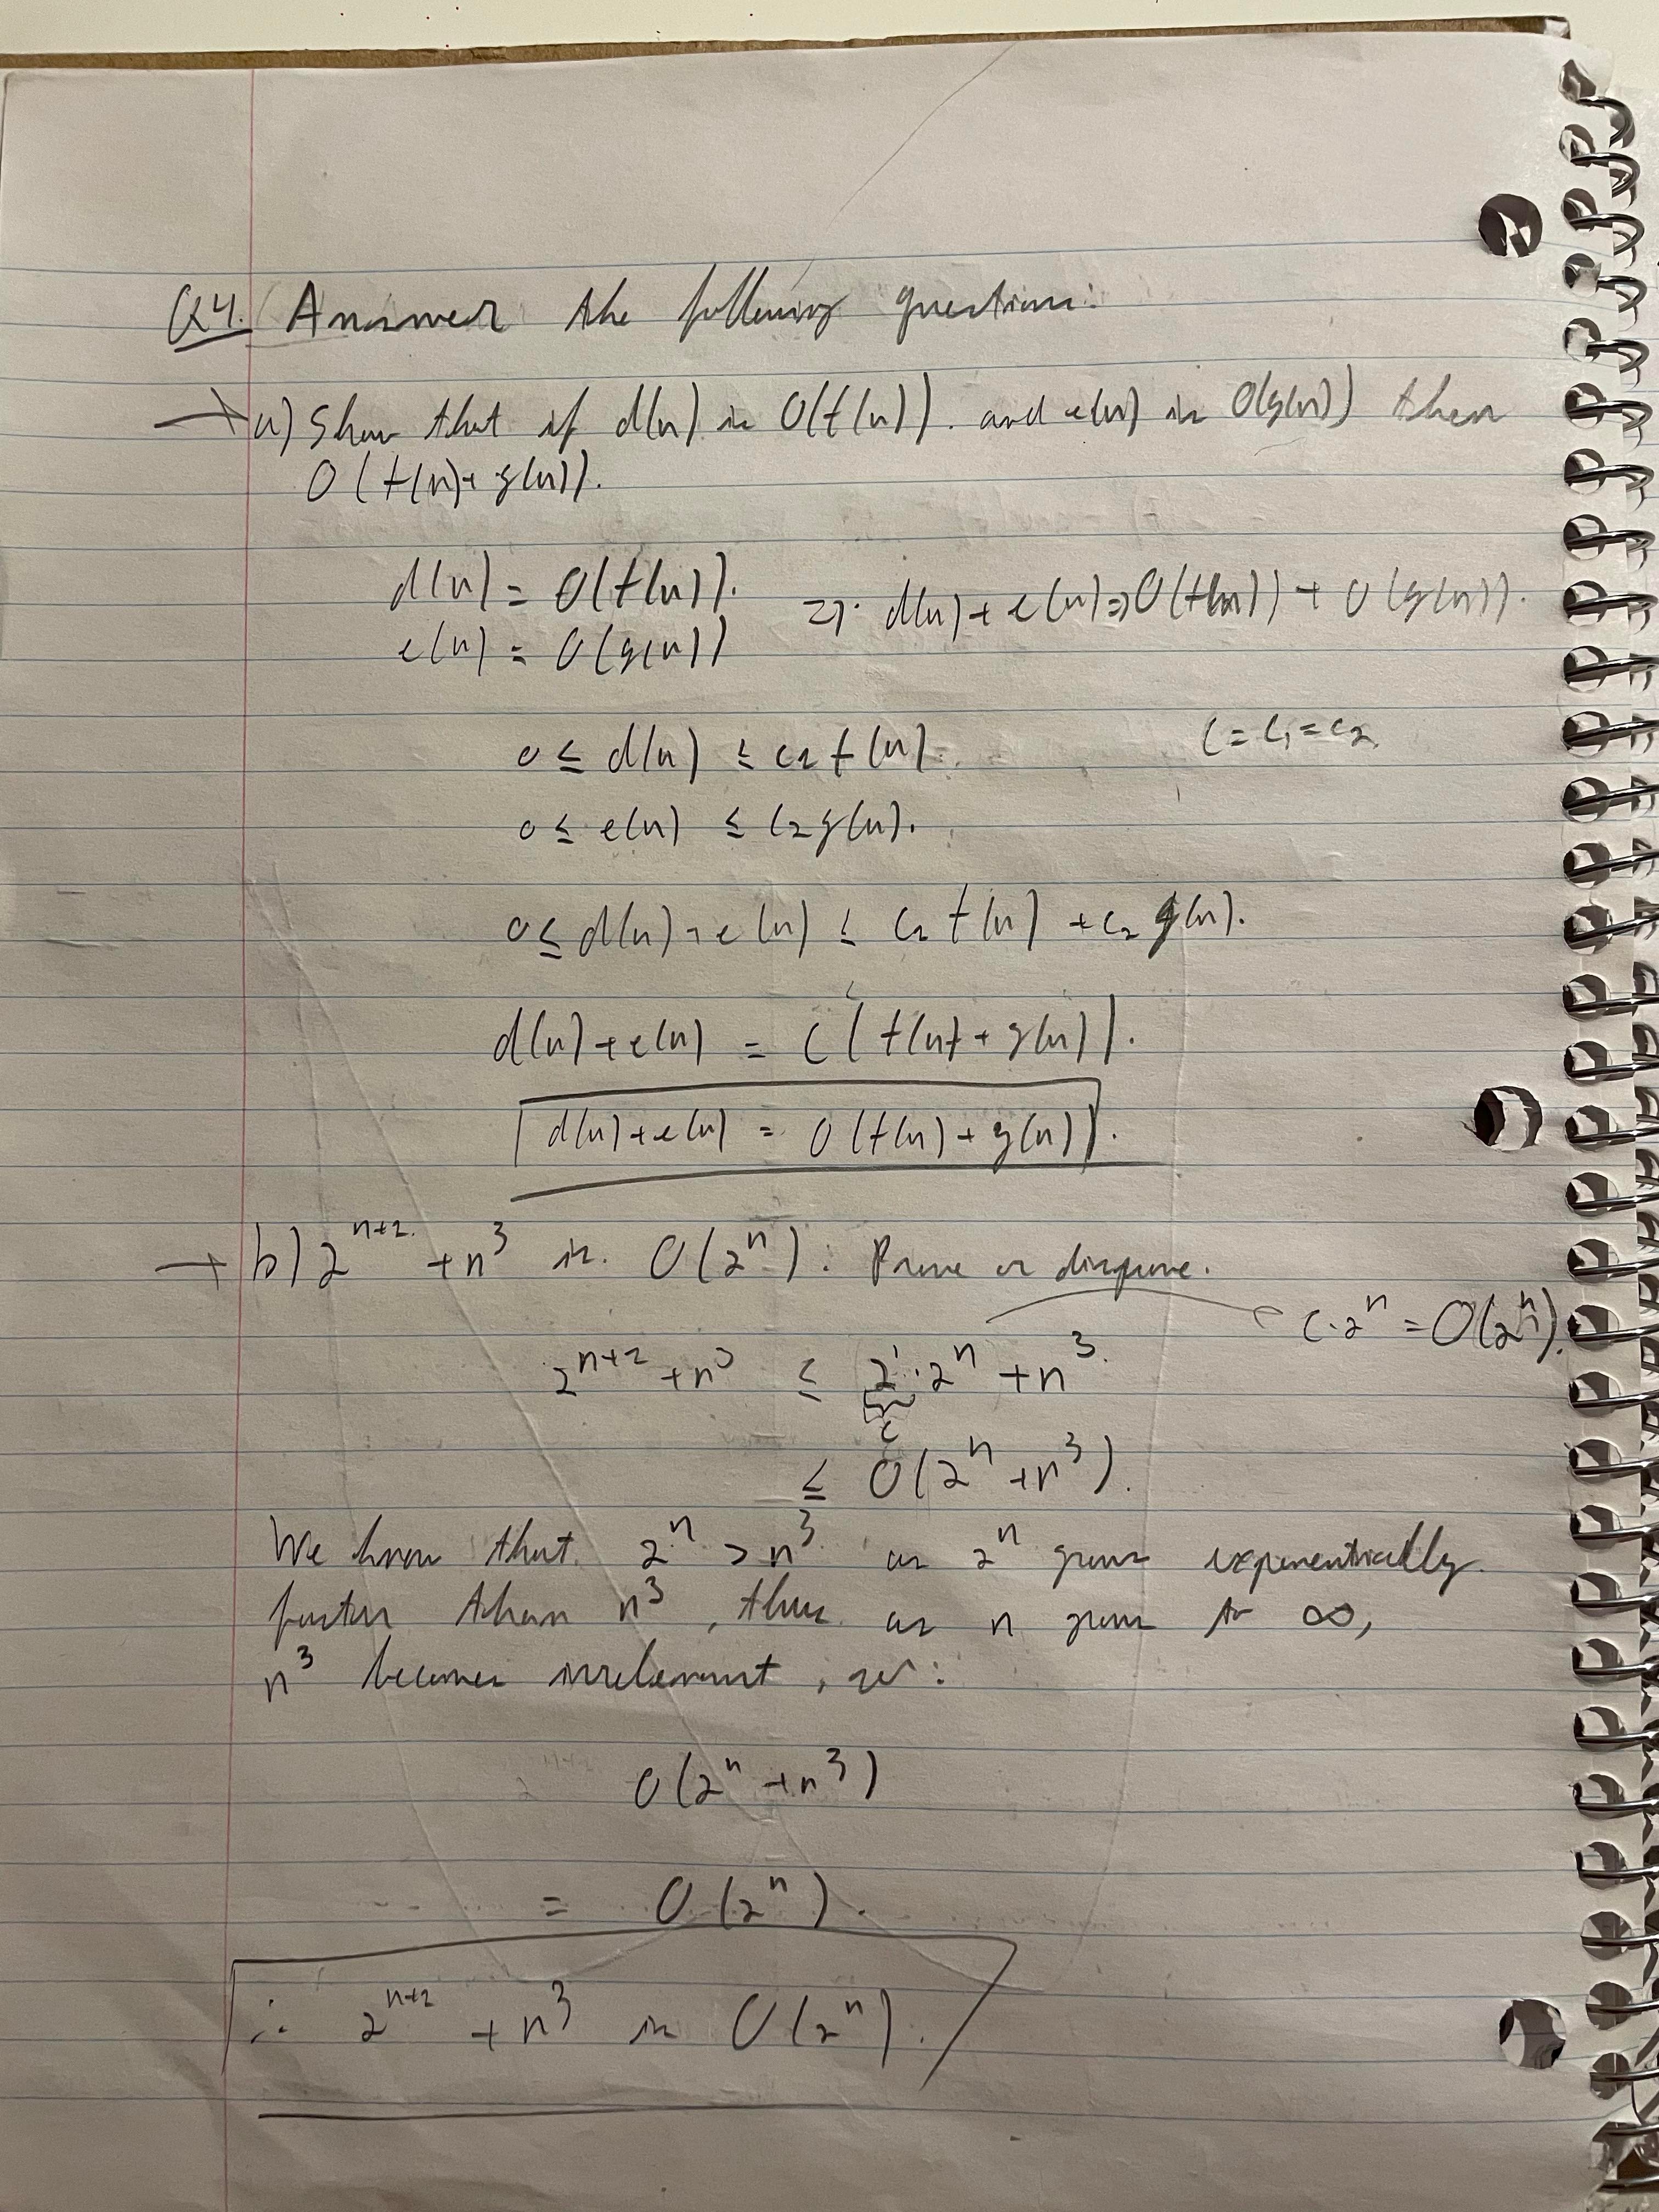 Q4. Answer the following questions:
→ a) Show that if d(n) is O(f(n)). and e(n) is O(g(n)) then
O(f(n)+g(n)).
d(n) = O(f(n)). => d(n)+e(n)=>O(f(n)) + O(g(n)).
e(n) = O(g(n))
0 ≤ d(n) ≤ c₂f(n). C=C₁=C₂
0 ≤ e(n) ≤ C₂g(n).
0 ≤ d(n)+e(n) ≤ C₂f(n) + C₂g(n).
d(n)+e(n) = C(f(n)+g(n)).
d(n)+e(n) = O(f(n)+g(n)).
→ b) 2ⁿ⁺² + n³ is. O(2ⁿ): Prove or disprove.
C·2ⁿ = O(2ⁿ).
2ⁿ⁺² + n³ ≤ 2¹·2ⁿ + n³.
C
≤ O(2ⁿ+n³).
We know that 2ⁿ > n³ as 2ⁿ grows exponentially
faster than n³, thus as n grows to ∞,
n³ becomes irrelevant, so:
O(2ⁿ+n³)
= O(2ⁿ).
∴ 2ⁿ⁺² + n³ is O(2ⁿ).